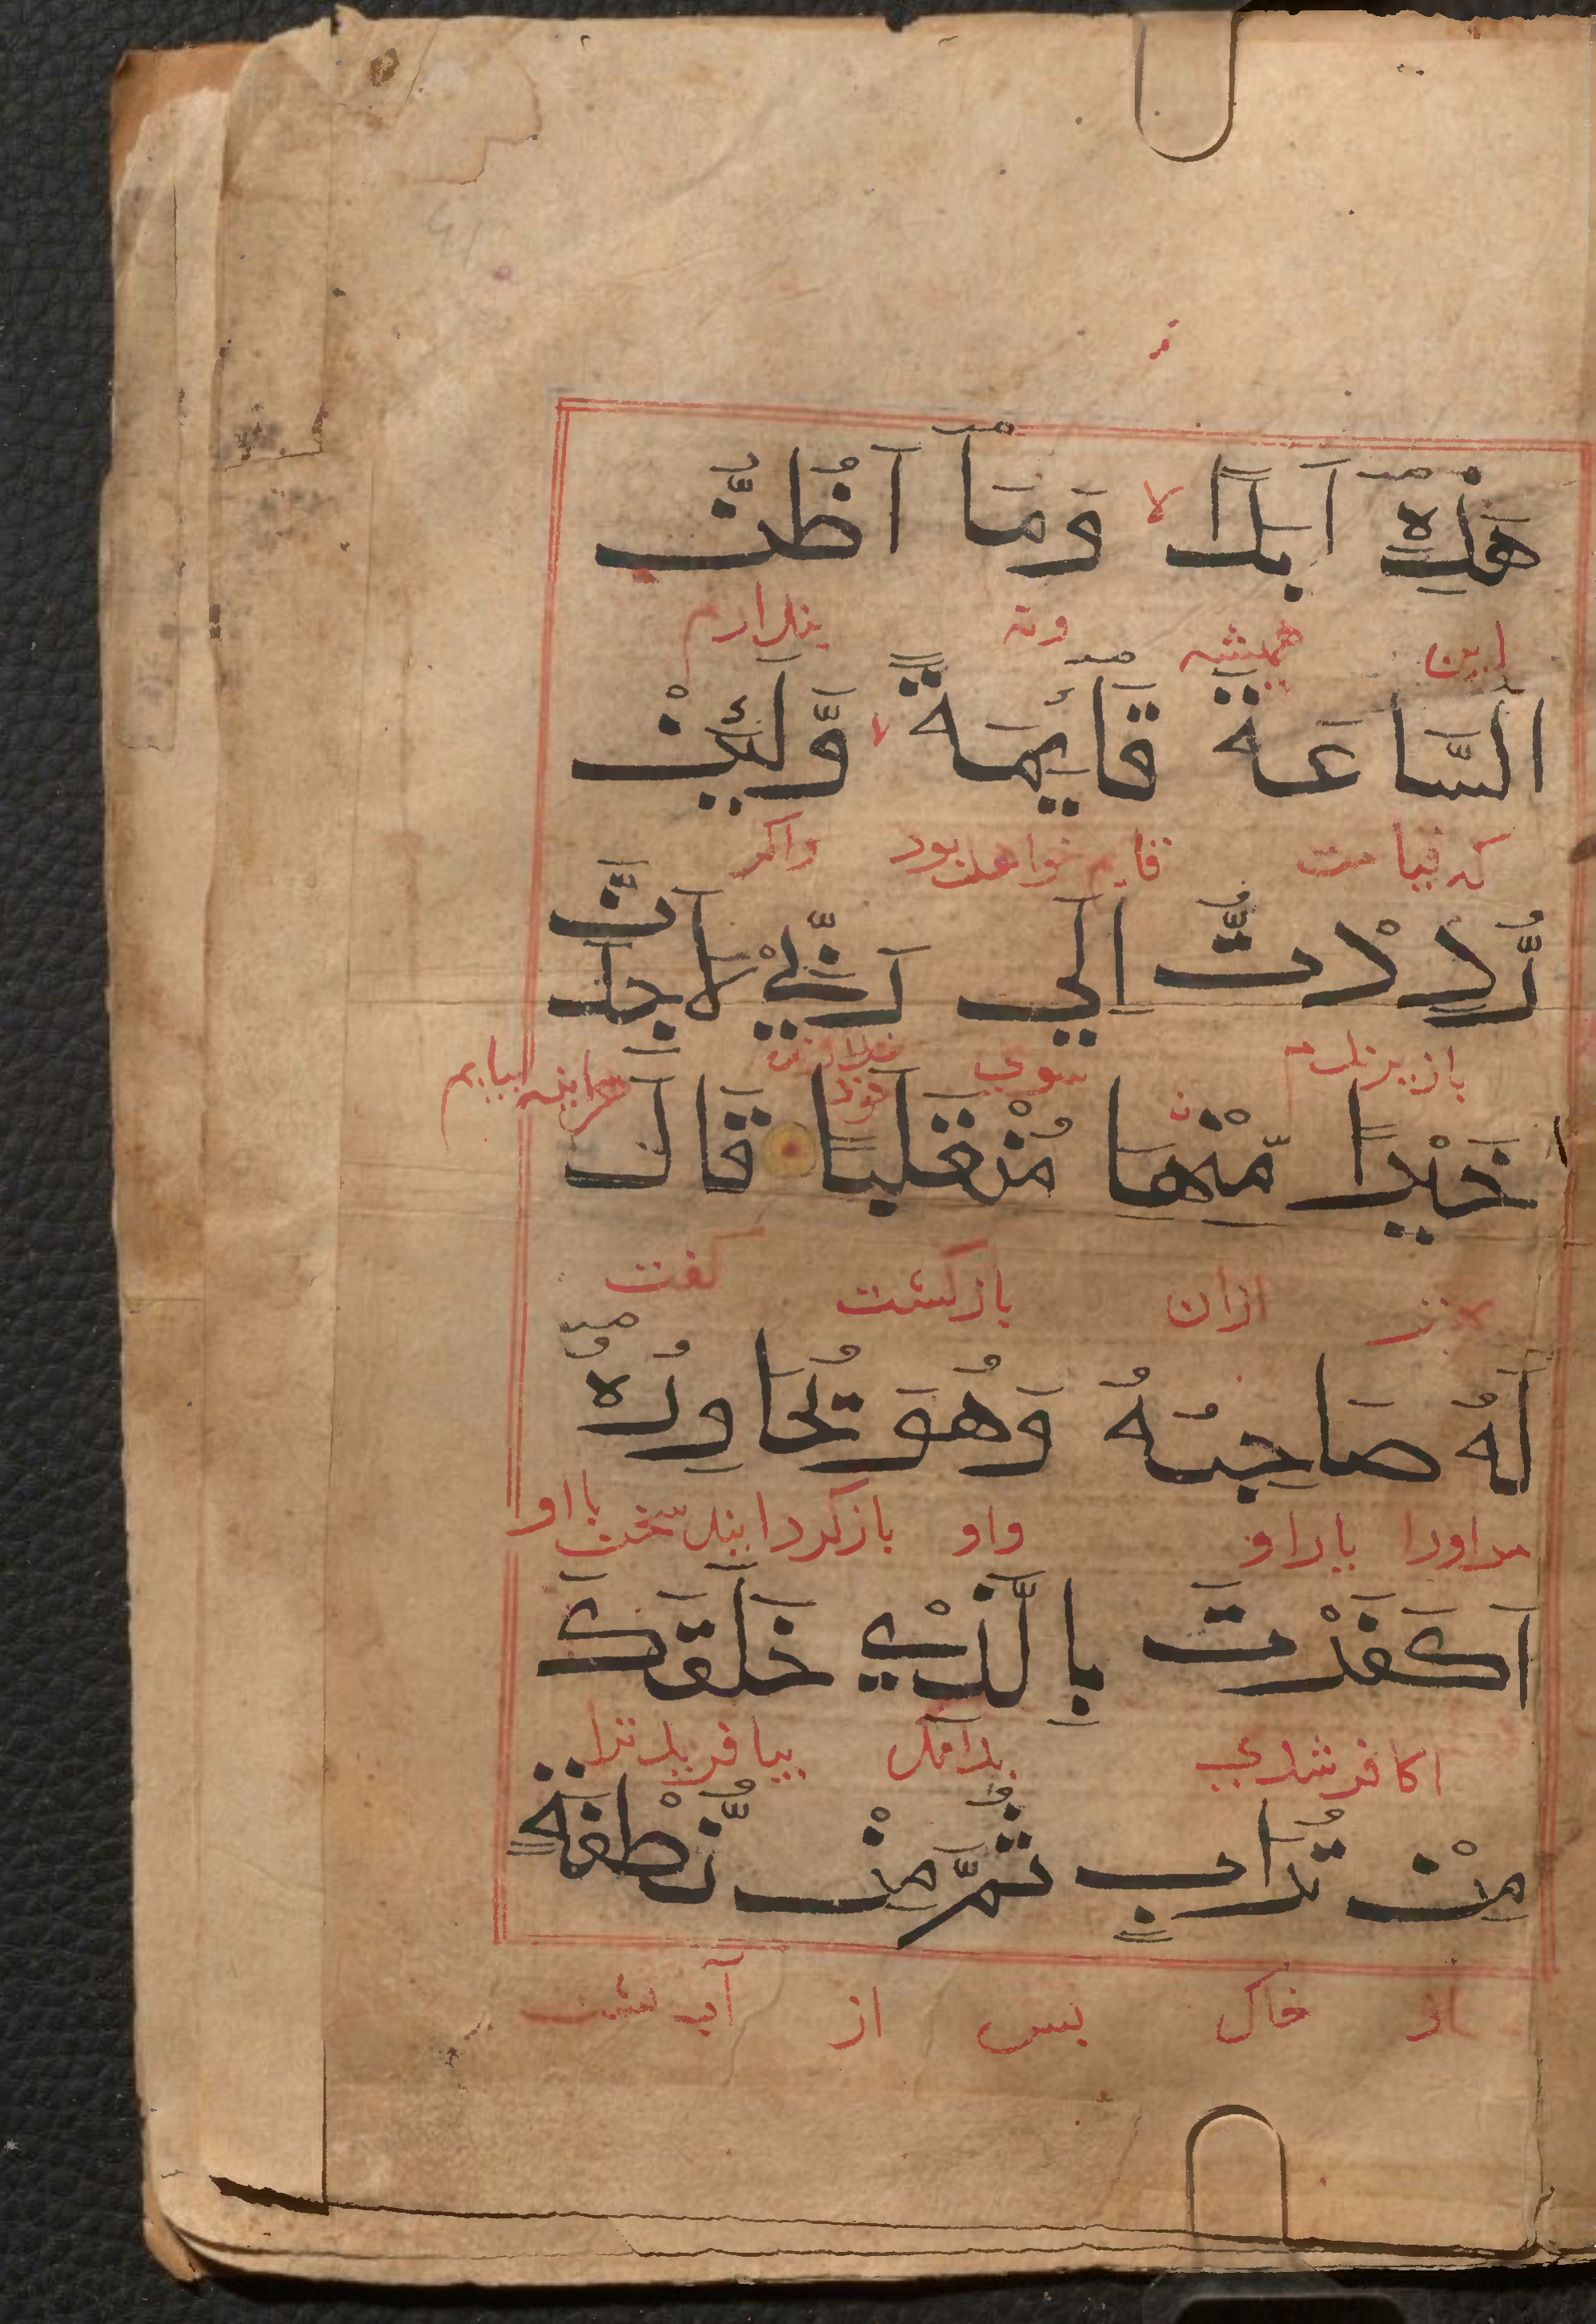 هٰذِهٖۤ اَبَدًا لا وَمَاۤ اَظُنُّ
این همیشه ونه پندارم
السَّاعَةَ قَآئِمَةً لا وَّلَئِنْ
که قیامت قایم خواهد بود واکر
رُّدِدْتُّ اِلٰي رَبِّيْ لَاَجِدَنَّ
باز سوي خود هراینه بیابم
خَيْرًا مِّنْهَا مُنْقَلَبًا قَالَ
ازان بازکشت کفت
لَهٗ صَاحِبُهٗ وَهُوَ يُحَاوِرُهٗۤ
مراورا یاراو واو بازکردانید سخن بااو
اَكَفَرْتَ بِالَّذِيْ خَلَقَكَ
اکافرشدي بدانک بیافریدترا
مِنْ تُرَابٍ ثُمَّ مِنْ نُّطْفَةٍ
از خاک پس از آب پشت